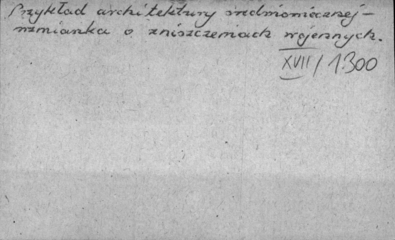 Przykład architektury średniowiecznej –
wzmianka o zniszczeniach wojennych.
XVII/1300